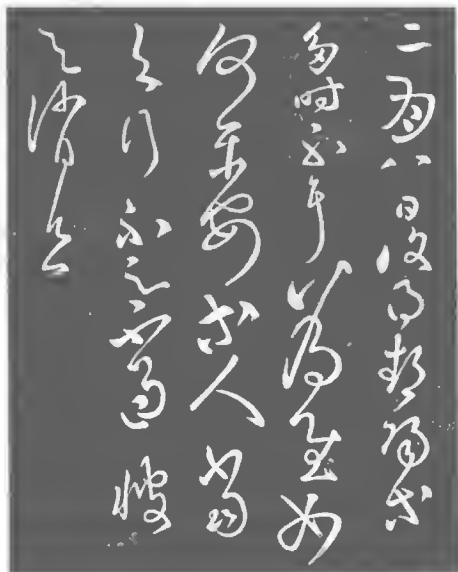 二月八日復得鄱陽等
多時不耳為慰如
何平安等人當
與行不足不過
與消息